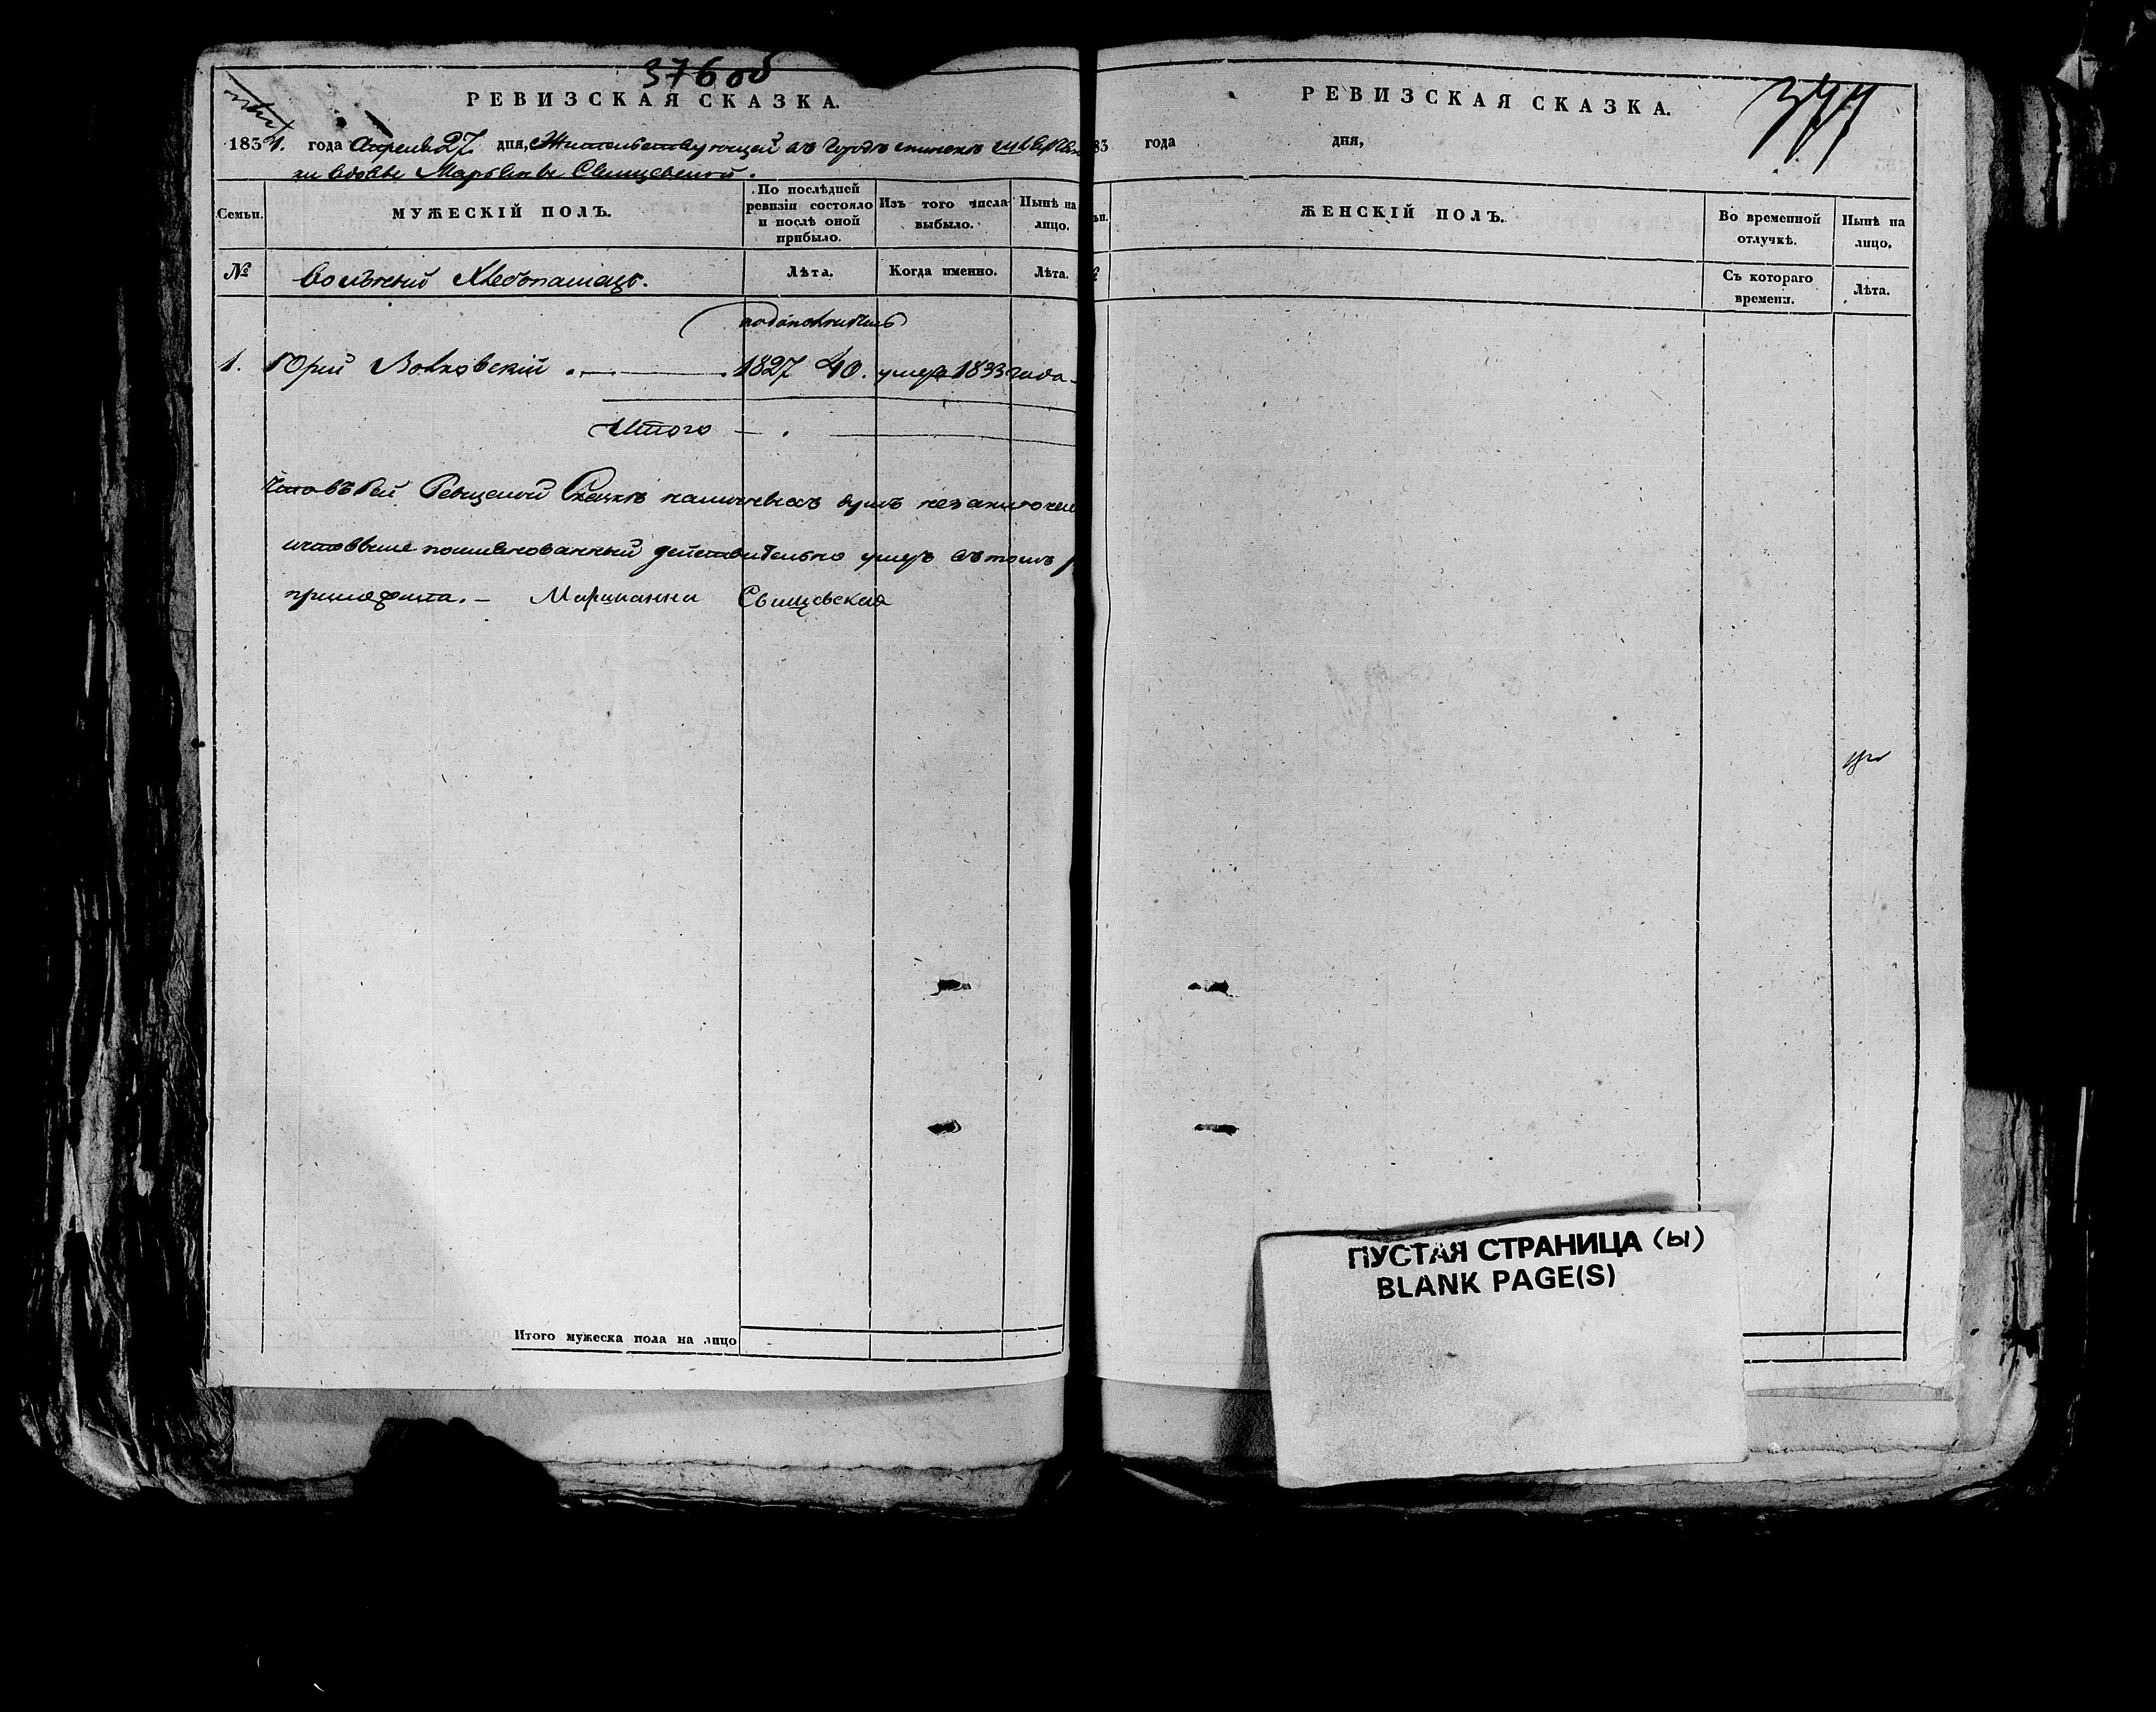 376 об
РЕВИЗСКАЯ СКАЗКА.
1834. года Апреля 27 дня, Жительствующей въ Городѣ
вдовы Свищевской.
Семьи. МУЖЕСКІЙ ПОЛЪ. По послѣдней ревизіи состояло и послѣ оной прибыло. Изъ того числа выбыло. Нынѣ на лицо.
№ Вольный Хлебопашецъ. Лѣта. Когда именно. Лѣта.
1. Юрий Волковский 1827 40. умер 1833 года
Итого
Что въ сей Ревизской Сказке наличныхъ душъ
и что выше поименованный действительно умеръ въ томъ
Марианна Свищовская
Итого мужеска пола на лицо
377
РЕВИЗСКАЯ СКАЗКА.
83 года дня,
ЖЕНСКІЙ ПОЛЪ. Во временной отлучкѣ. Нынѣ на лицо.
Съ котораго времени. Лѣта.
ПУСТАЯ СТРАНИЦА (Ы)
BLANK PAGE(S)